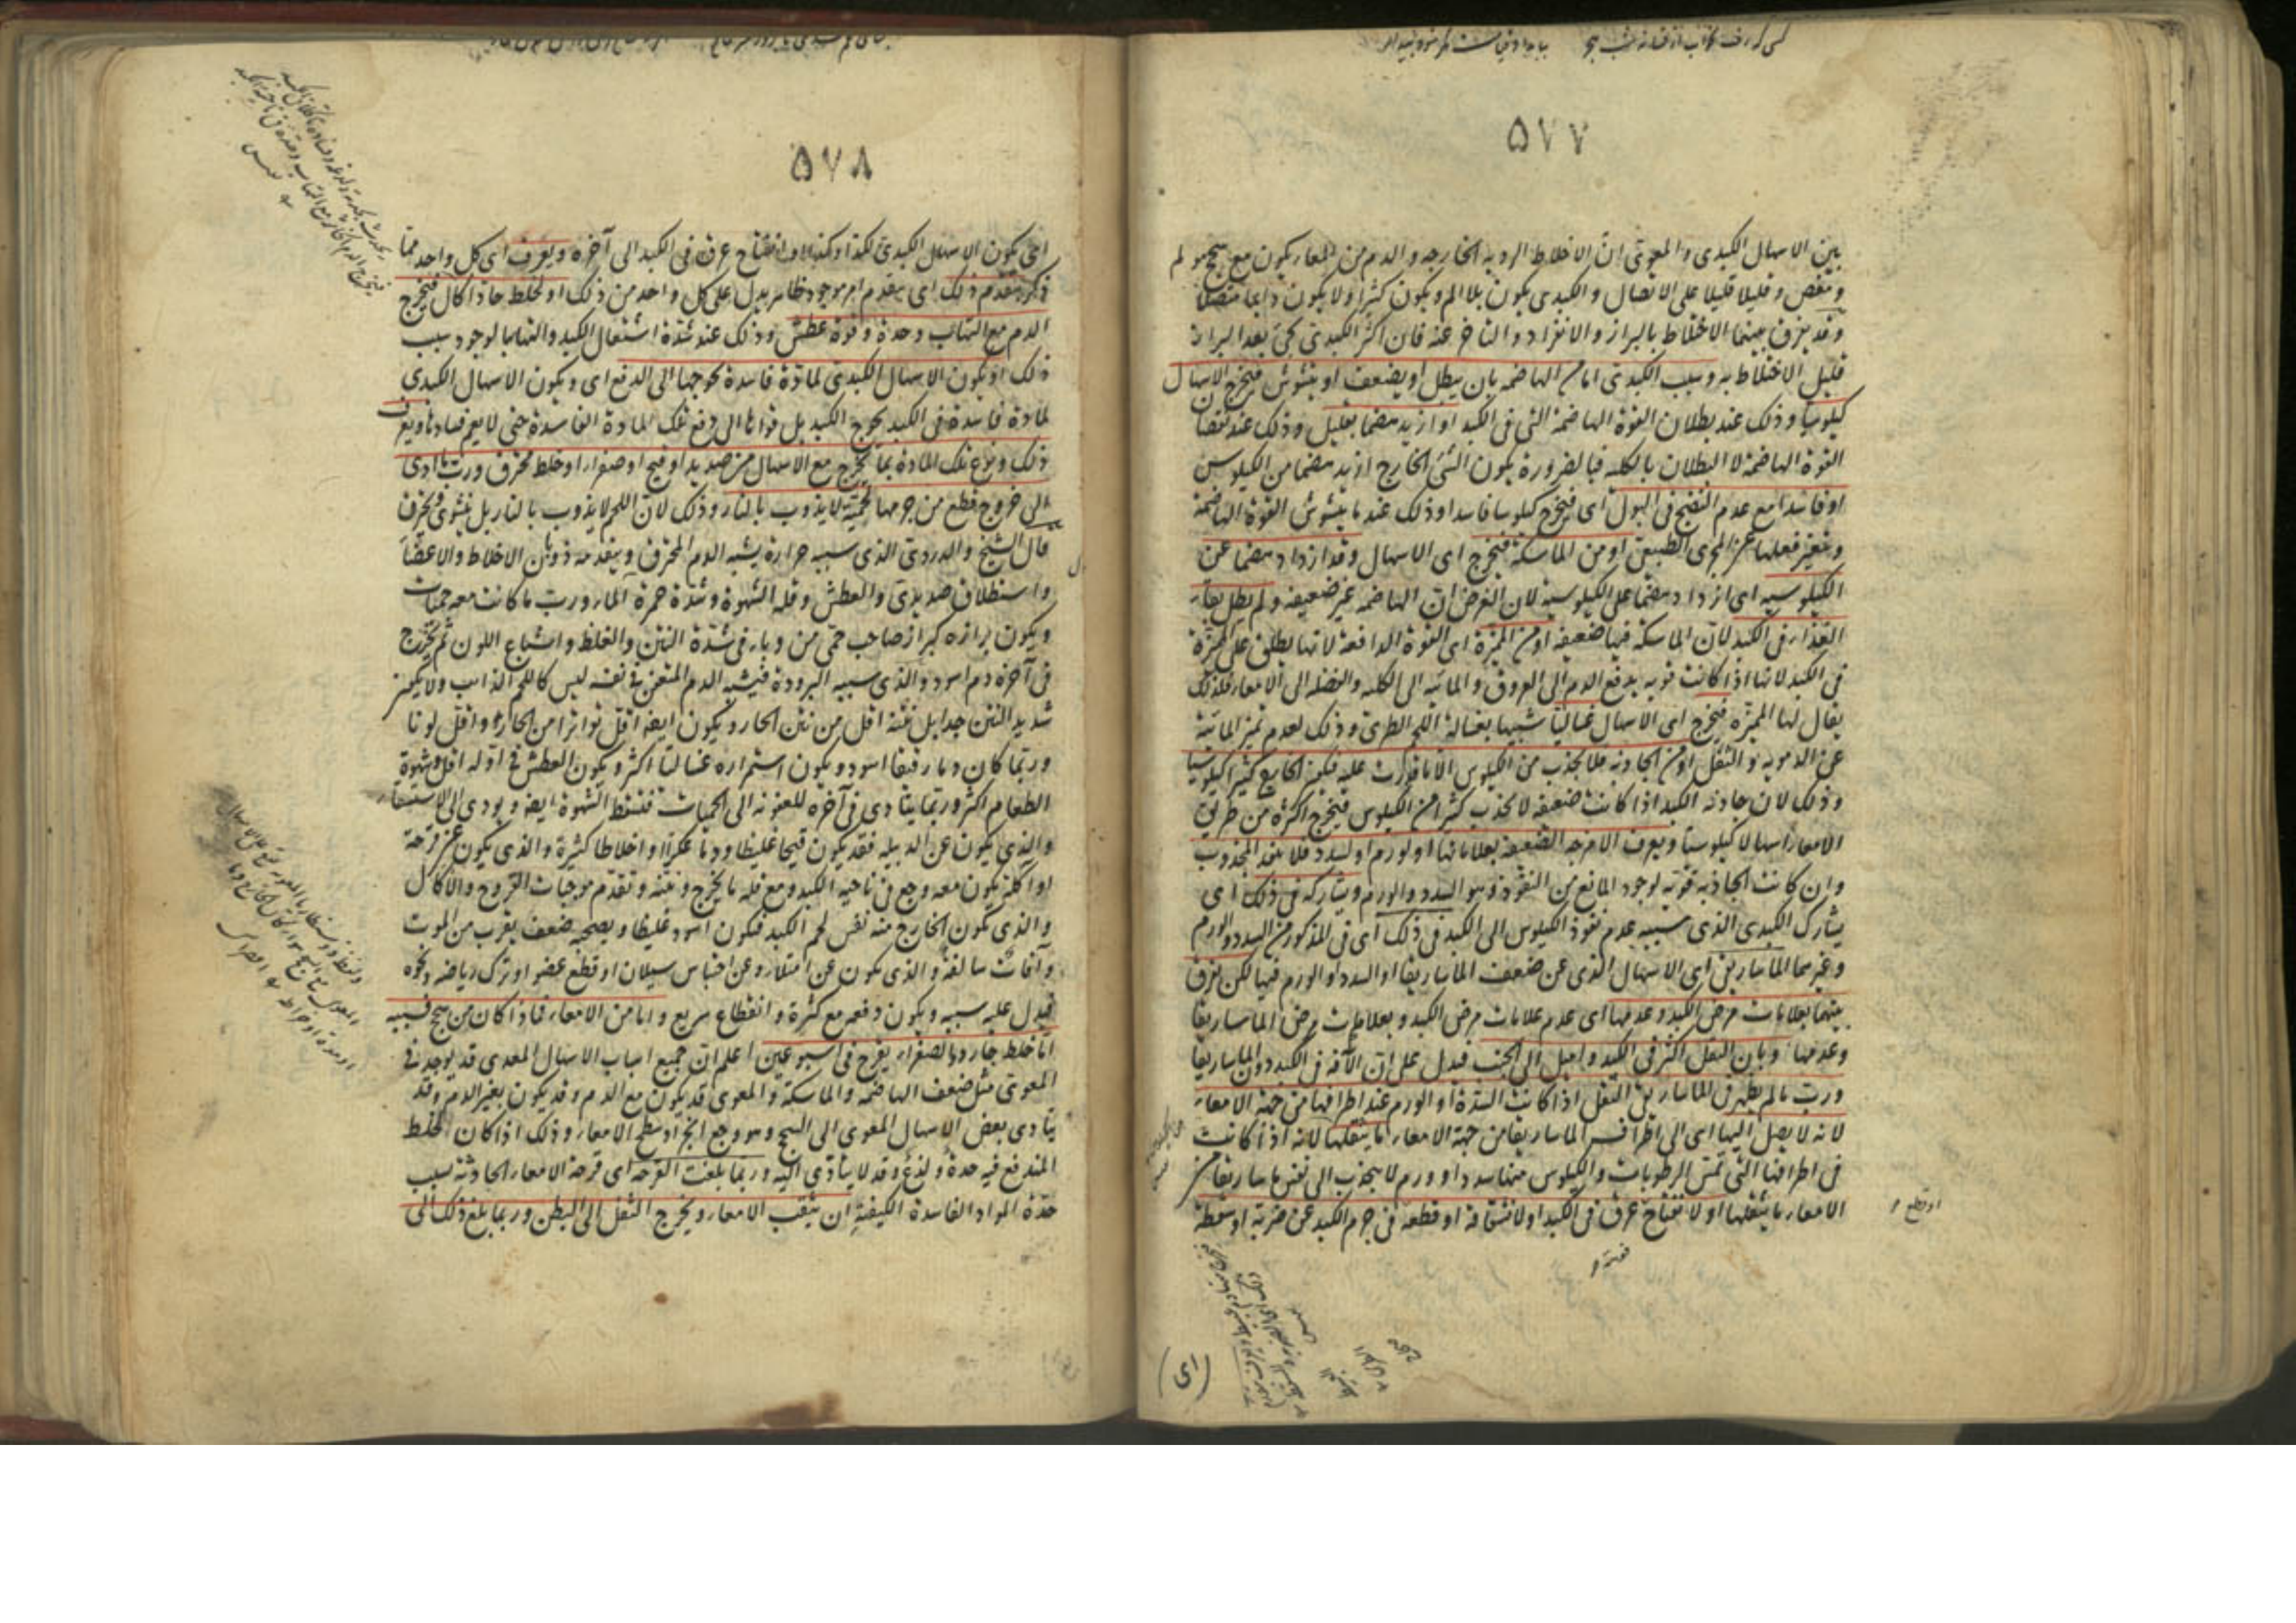 ٥٧٧
بين الاسهال الكبدى والمعوى ان الاخلاط الردية الخارجة والدم من المعا يكون مع سحج مولم
ومغص وقليلا قليلا على الاتصال والكبدى يكون بلا الم ويكون كثيرا ولا يكون دايما متصلا
وقد يفرق بينهما الاختلاط بالبراز والانفراد والتاخر عنه فان اكثر الكبدى يجئ بعد البراز
قليل الاختلاط به وسبب الكبدى اما من الهاضمة بان يبطل او يضعف او يتشوش فيخرج الاسهال
كيلوسيا وذلك عند بطلان القوة الهاضمة التى فى الكبد او ازيد هضما بقليل وذلك عند نقصان
القوة الهاضمة لا البطلان بالكلية فبالضرورة يكون الشئ الخارج ازيد هضما من الكيلوس
او فاسدا مع عدم النضج فى البول اى فيخرج كيلوسا فاسدا وذلك عند ما يتشوش القوة الهاضمة
ويتغير فعلها عن المجرى الطبيعى او من الماسكة فيخرج اى الاسهال وقد ازداد هضما عن
الكيلوسية اى ازداد هضما على الكيلوسية لان الغرض ان الهاضمة غير ضعيفة ولم يطل بقاء
الغذاء فى الكبد لان الماسكة فيها ضعيفة او من المميزة اى القوة الدافعة لانها يطلق على المميزة
فى الكبد لانها اذا كانت قوية يدفع الدم الى العروق والمائية الى الكلية والفضلة الى الامعاء فلذلك
يقال لها المميزة فيخرج اى الاسهال غساليا شبيها بغسالة اللحم الطرى وذلك لعدم تميز المائية
عن الدموية والثفل او من الجاذبة فلا يجذب من الكيلوس الا ما قدرت عليه فيكون الخارج كثيرا كيلوسيا
وذلك لان جاذبة الكبد اذا كانت ضعيفة لا يجذب كثيرا من الكيلوس فيخرج اكثره من طريق
الامعاء اسهالا كيلوسيا ويعرف الامزجة الضعيفة بعلاماتها او لورم او لسدد فلا ينفذ المجذوب
وان كانت الجاذبة قوية لوجود المانع من النفوذ وهو السدد والورم ويشاركه فى ذلك اى
يشارك الكبدى الذى سببه عدم نفوذ الكيلوس الى الكبد فى ذلك اى فى المذكور من السدد والورم
وغيرهما الماساريقى اى الاسهال الذى عن ضعف الماساريقا او السدد او الورم فيها لكن يفرق
بينهما بعلامات مرض الكبد وعدمها اى عدم علامات مرض الكبد وبعلامات مرض الماساريقا
وعدمها وبان الثقل اكثر فى الكبد واميل الى الجنب فيدل على ان الآفة فى الكبد دون الماساريقا
وربما لم يظهر فى الماساريقى الثقل اذا كانت السدة او الورم عند اطرافها من جهة الامعاء
لانه لا يصل اليها اى الى اطراف الماساريقا من جهة الامعاء ما يثقلها لانه اذا كانت
فى اطرافها التى تمتص الرطوبات والكيلوس منها سدد او ورم لا ينجذب الى نفس ماساريقا من
الامعاء ما يثقلها او لانفتاح عرق فى الكبد او لانشقاقه او قطعه فى جرم الكبد عن ضربة او سقطة
او قطع
(اى)
٥٧٨
اى يكون الاسهال الكبدى لكذا وكذا او انفتاح عرق فى الكبد الى آخره ويعرف اى كل واحد مما
ذكر بتقدم ذلك اى بتقدم امر موجود ظاهر يدل على كل واحد من ذلك او لخلط حاد اكال فيخرج
الدم مع التهاب وحدة وقوة عطش وذلك عند شدة اشتعال الكبد والتهابها لوجود سبب
ذلك او يكون الاسهال الكبدى لمادة فاسدة تحوجها الى الدفع اى ويكون الاسهال الكبدى
لمادة فاسدة فى الكبد يحوج الكبد بل قواها الى دفع تلك المادة الفاسدة حتى لا يعم فسادها ويعرف
ذلك ونوع تلك المادة بما يخرج مع الاسهال من صديد او قيح او صفراء او خلط محترق وربما ادى
الى خروج قطع من جرمها لحمية لا يذوب بالنار وذلك لان اللحم لا يذوب بالنار بل يتشوى ويحترق
قال الشيخ والدردى الذى سببه حرارة يشبه الدم المحترق ويتقدمه ذوبان الاخلاط والاعضاء
واستطلاق صديدى والعطش وقلة الشهوة وشدة حمرة الماء وربما كانت معه حميات
ويكون برازه كبراز صاحب حمى من وباء فى شدة النتن والغلظ واشباع اللون ثم يخرج
فى آخره دم اسود والذى سببه البرودة فيشبه الدم المتعفن فى نفسه ليس كاللحم الذايب ولا يكون
شديد النتن جدا بل نتنه اقل من نتن الحار ويكون ايضا اقل تواترا من الحار واقل لونا
وربما كان دما رقيقا اسود ويكون استمراره غساليا اكثر ويكون العطش فى اوله اقل وشهوة
الطعام اكثر وربما يتادى فى آخره للعفونة الى الحميات فتسقط الشهوة ايضا ويودى الى الاستسقاء
والذى يكون عن الدبيلة فقد يكون قيحا غليظا ودما عكرا او اخلاطا كثيرة والذى يكون عن قرحة
او اكلة يكون معه وجع فى ناحية الكبد ومع قلة ما يخرج ونتنه وتقدم موجبات القروح والاكال
والذى يكون الخارج منه نفس لحم الكبد فيكون اسود غليظا ويصحبه ضعف يقرب من الموت
وآفات سالفة والذى يكون عن امتلاء وعن احتباس سيلان او قطع عضو او ترك رياضة ونحوه
فيدل عليه سببه ويكون دفعه مع كثرة وانقطاع سريع واما من الامعاء فما ذا كان من سحج فسببه
اما خلط حار دما لصفراء يقرح فى اسبوعين اعلم ان جميع اسباب الاسهال المعدى قد يوجد فى
المعوى مثل ضعف الهاضمة والماسكة والمعوى قد يكون مع الدم وقد يكون بغير الدم وقد
يتادى بعض الاسهال المعوى الى السحج وهو وجع انجراد سطح الامعاء وذلك اذا كان الخلط
المندفع فيه حدة ولذع وقد لا يتادى اليه وربما بلغت القرحة اى قرحة الامعاء الحادثة بسبب
حدة المواد الفاسدة الكيفية ان يثقب الامعاء ويخرج الثفل الى البطن وربما بلغ ذلك الى